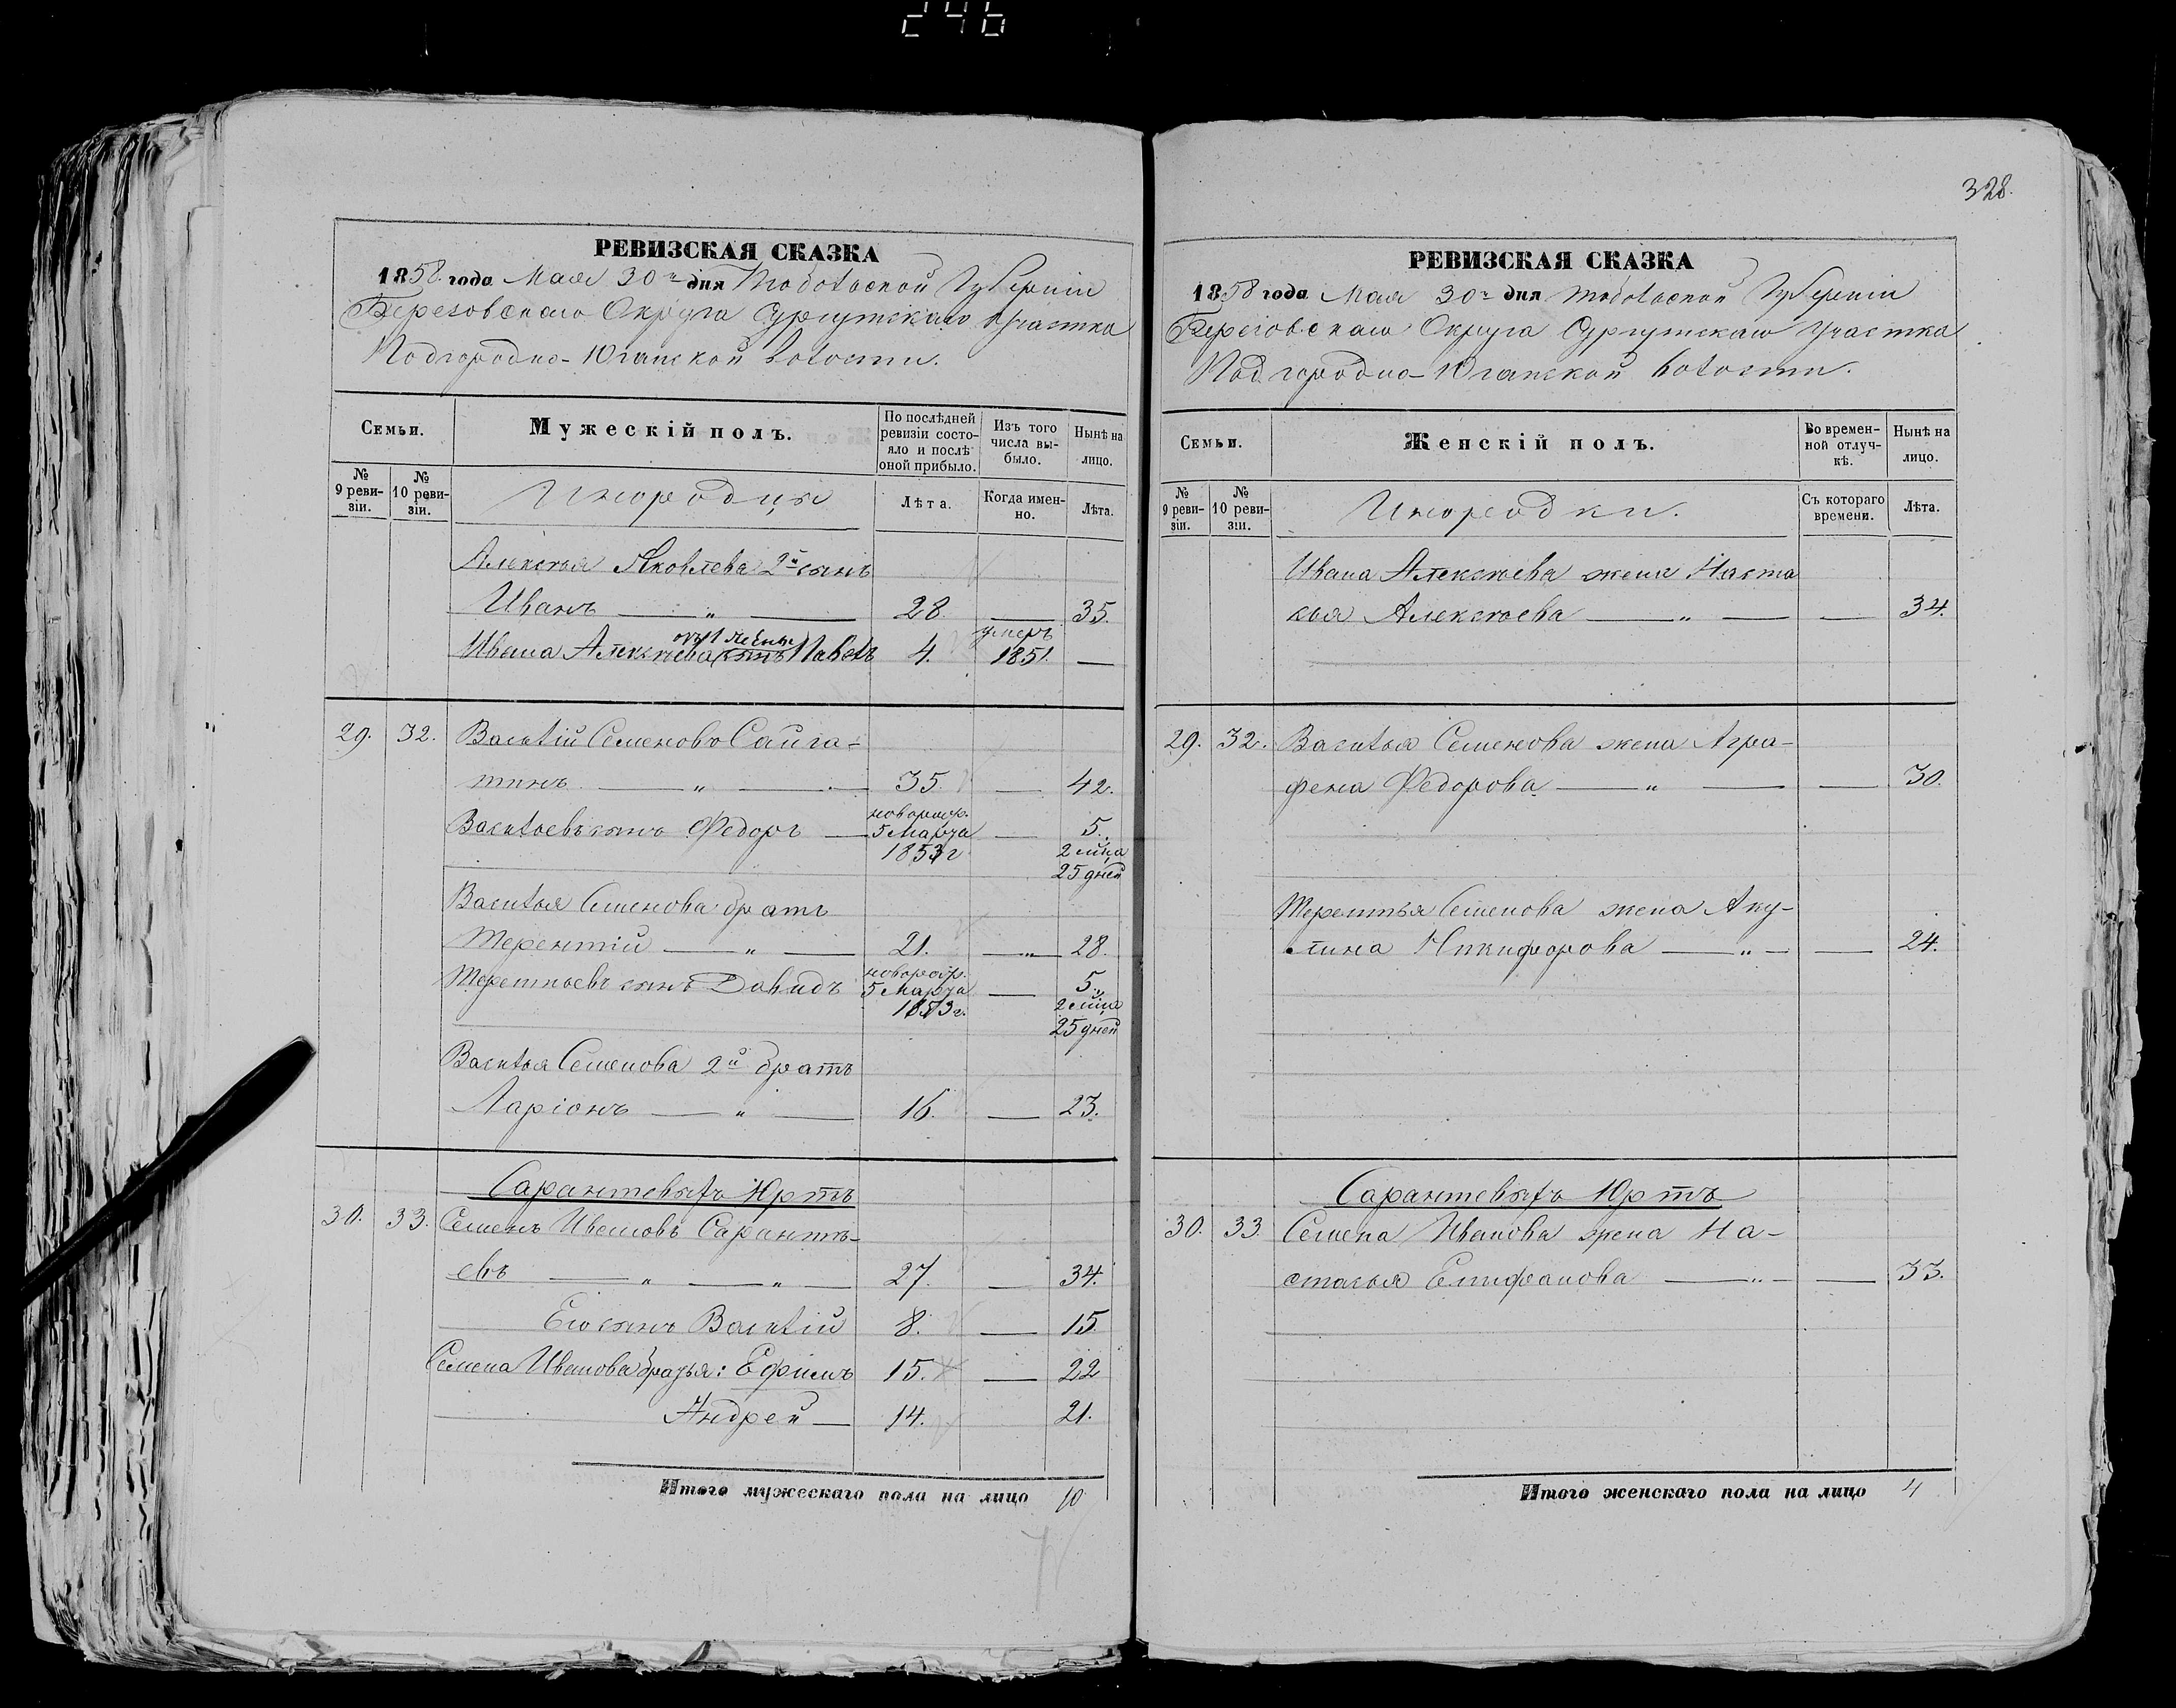 246
328.
РЕВИЗСКАЯ СКАЗКА
1858 года Мая 30го дня Тобольской Губерніи
Березовскаго Округа Сургутскаго Участка
Подгородно-Юганской волости.
Семьи.
Мужескій полъ.
По послѣдней ревизіи состо-
яло и послѣ оной прибыло.
Изъ того числа вы-
было.
Нынѣ на лицо.
№ 9 реви-
зіи.
№ 10 реви-
зіи.
Инородцы
Лѣта.
Когда имен-
но.
Лѣта.
Алексѣя Яковлева 2й сынъ
Иванъ — „ — 28. — 35.
Ивана Алексѣева сынъ Павелъ 4. умеръ 1851. —
29. 32. Василій Семеновъ Сайга-
тинъ — „ — 35. — 42.
Васильевъ сынъ Федоръ — новорож. 5 Марта 1853 г — 5. 2 мца 25 дней
Василья Семенова братъ
Терентій — „ — 21. — „ — 28.
Терентьевъ сынъ Давидъ новорож. 5 Марта 1853 г. — 5. 2 мца 25 дней
Василья Семенова 2й братъ
Ларіонъ — „ — 16. — 23.
Сарантевыхъ Юртъ
30. 33. Семенъ Ивановъ Сарантѣ-
евъ — „ — „ — 27. — 34.
Его сынъ Василій 8. — 15.
Семена Иванова братья: Ефимъ 15. — 22
Андрей — 14. 21.
Итого мужескаго пола на лицо 10
РЕВИЗСКАЯ СКАЗКА
1858 года Мая 30го дня Тобольской Губерніи
Березовскаго Округа Сургутскаго Участка
Подгородно-Юганской волости.
Семьи.
Женскій полъ.
Во времен-
ной отлуч-
кѣ.
Нынѣ на лицо.
№ 9 реви-
зіи.
№ 10 реви-
зіи.
Инородки.
Съ котораго времени.
Лѣта.
Ивана Алексѣева жена Наста
сья Алексѣева — „ — — 34.
29. 32. Василья Семенова жена Агра-
фена Федорова — „ — — 30.
Терентья Семенова жена Аку-
лина Никифорова — „ — — 24.
Сарантевыхъ Юртъ
30. 33. Семена Иванова жена На-
стасья Епифанова — „ — — 33.
Итого женскаго пола на лицо 4